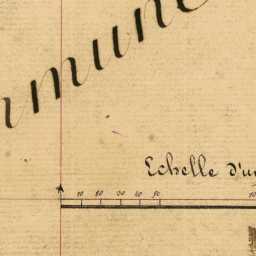 mmune
Echelle d'u
10 20 30 40 50 10